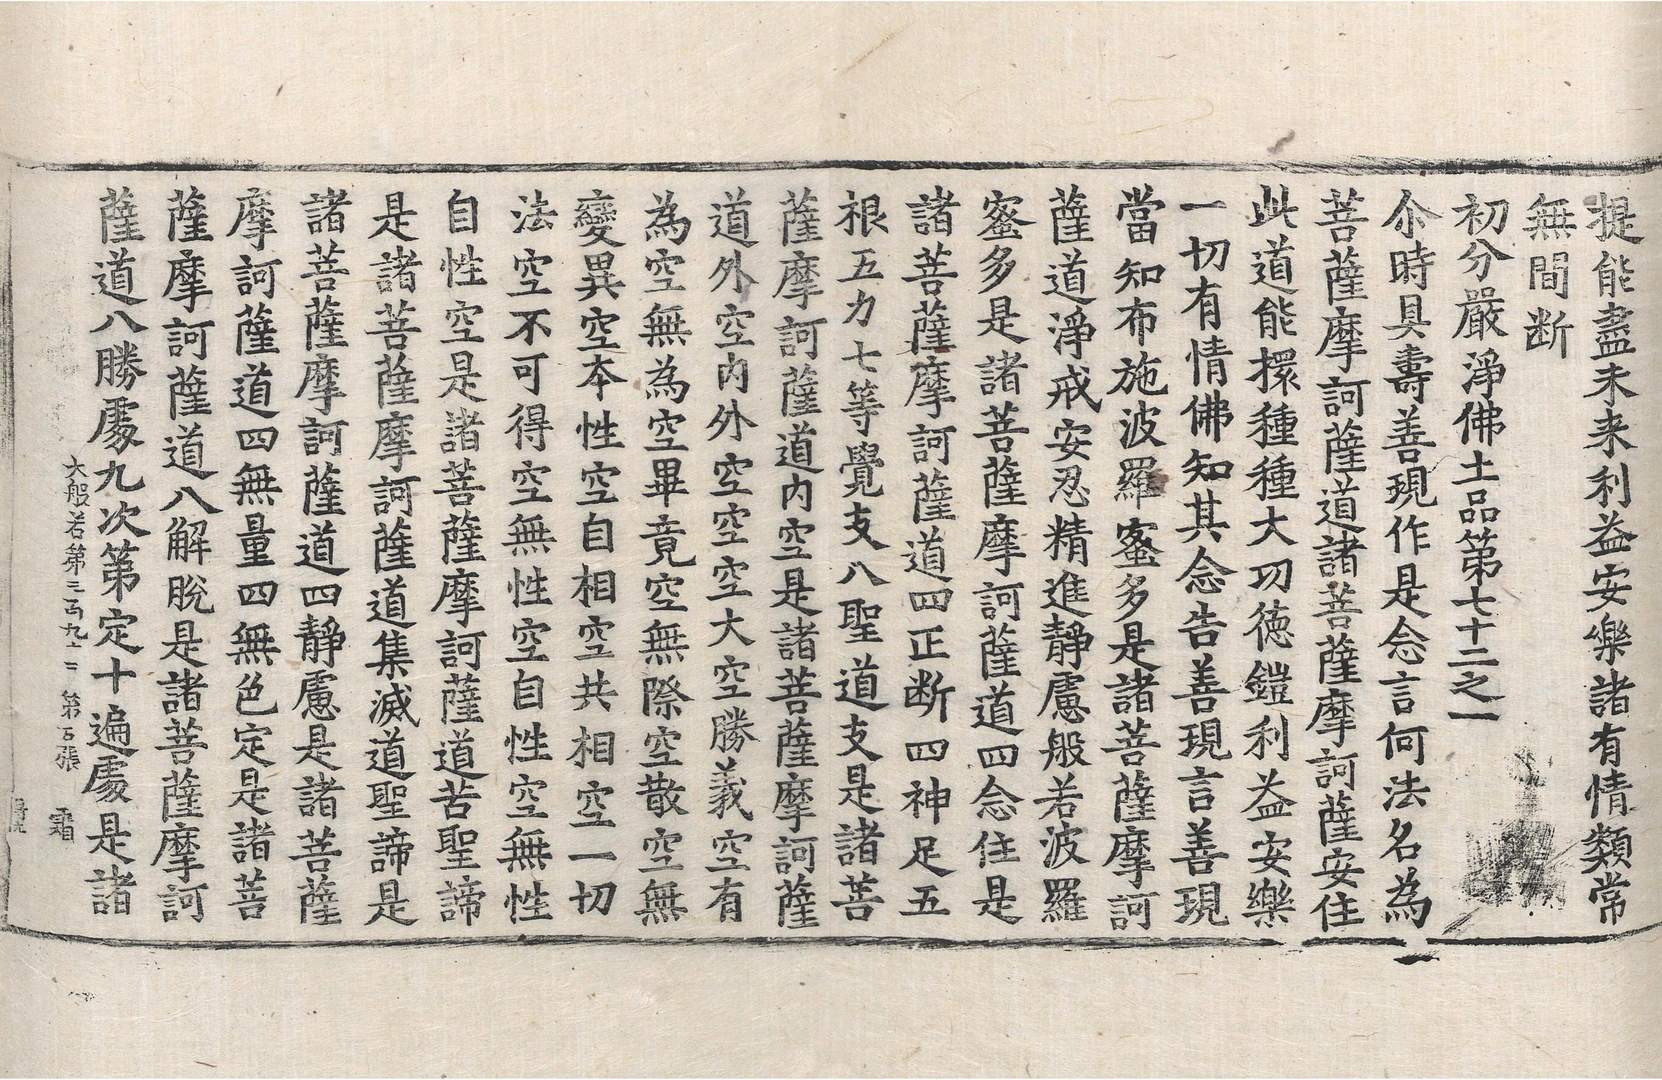 提能盡未来利益安樂諸有情類常
無間断
初分嚴淨佛土品第七十二之一
尒時具壽善現作是念言何法名為
菩薩摩訶薩道諸菩薩摩訶薩安住
此道能擐種種大㓛德鎧利益安樂
一切有情佛知其念告善現言善現
當知布施波羅蜜多是諸菩薩摩訶
薩道淨戒安忍精進靜慮般若波羅
蜜多是諸菩薩摩訶薩道四念住是
諸菩薩摩訶薩道四正断四神足五
根五力七等覺支八聖道支是諸菩
薩摩訶薩道内空是諸菩薩摩訶薩
道外空内外空空空大空勝義空有
為空無為空畢竟空無際空散空無
變異空本性空自相空共相空一切
法空不可得空無性空自性空無性
自性空是諸菩薩摩訶薩道苦聖諦
是諸菩薩摩訶薩道集滅道聖諦是
諸菩薩摩訶薩道四靜慮是諸菩薩
摩訶薩道四無量四無色定是諸菩
薩摩訶薩道八解脫是諸菩薩摩訶
薩道八勝處九次第定十遍處是諸
大般若第三百九十二 第石張 霜